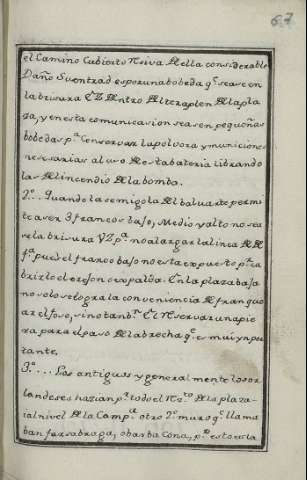 67
el Camino Cubierto Reciva de ella considerable
Daño Su entrad es por una bobeda q.e se ase en
la brisura CZ dentro del teraplen de la pla
za, y en esta comunicasion se asen pequeñas
bobedas p.a Conservar la polvora y municiones
nesesarias al uso de esta bateria librando
las del incendio de la bomba.
2.o .. Quando la semigola del baluarte permi
te aser 3 francos bajo, Medio y alto no se a
se la brisura YZ p.a no alargar la linea de
f.a pues el franco bajo no esta expuesto p.r cu
brirlo el orejon o espalda. En la plaza baja
no solo se logra la conveniencia de franque
ar el foso, sino tanb.n el Reservar una pie
za para el paso de la brecha q.e es mui ynpor
tante.
3.o ... Los antiguos y generalmente los or
landeses hazian p.r todo el Re.to de la plaza
al nivel de la Camp.a otro 2.o muro q.e llama
ban farsabraga, o barbacona, p.o esto es la